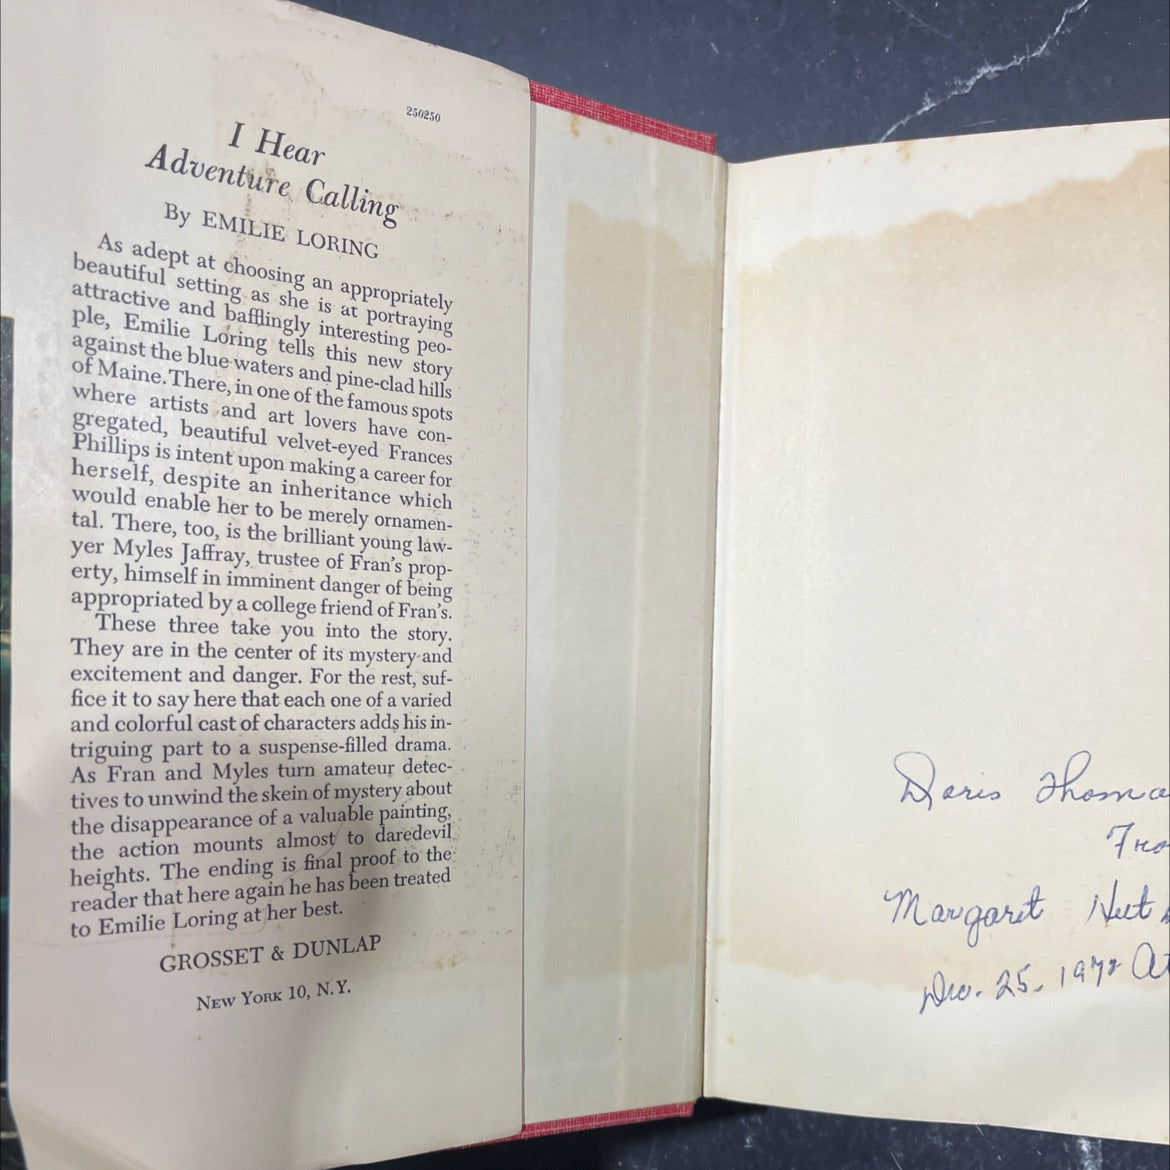 250250
I Hear
Adventure Calling
By EMILIE LORING
As adept at choosing an appropriately
beautiful setting as she is at portraying
attractive and bafflingly interesting peo-
ple, Emilie Loring tells this new story
against the blue waters and pine-clad hills
of Maine. There, in one of the famous spots
where artists and art lovers have con-
gregated, beautiful velvet-eyed Frances
Phillips is intent upon making a career for
herself, despite an inheritance which
would enable her to be merely ornamen-
tal. There, too, is the brilliant young law-
yer Myles Jaffray, trustee of Fran's prop-
erty, himself in imminent danger of being
appropriated by a college friend of Fran's.
These three take you into the story.
They are in the center of its mystery and
excitement and danger. For the rest, suf-
fice it to say here that each one of a varied
and colorful cast of characters adds his in-
triguing part to a suspense-filled drama.
As Fran and Myles turn amateur detec-
tives to unwind the skein of mystery about
the disappearance of a valuable painting,
the action mounts almost to daredevil
heights. The ending is final proof to the
reader that here again he has been treated
to Emilie Loring at her best.
GROSSET & DUNLAP
NEW YORK 10, N.Y.
Doris Thoma
Fro
Margaret Hut
Dec. 25. At